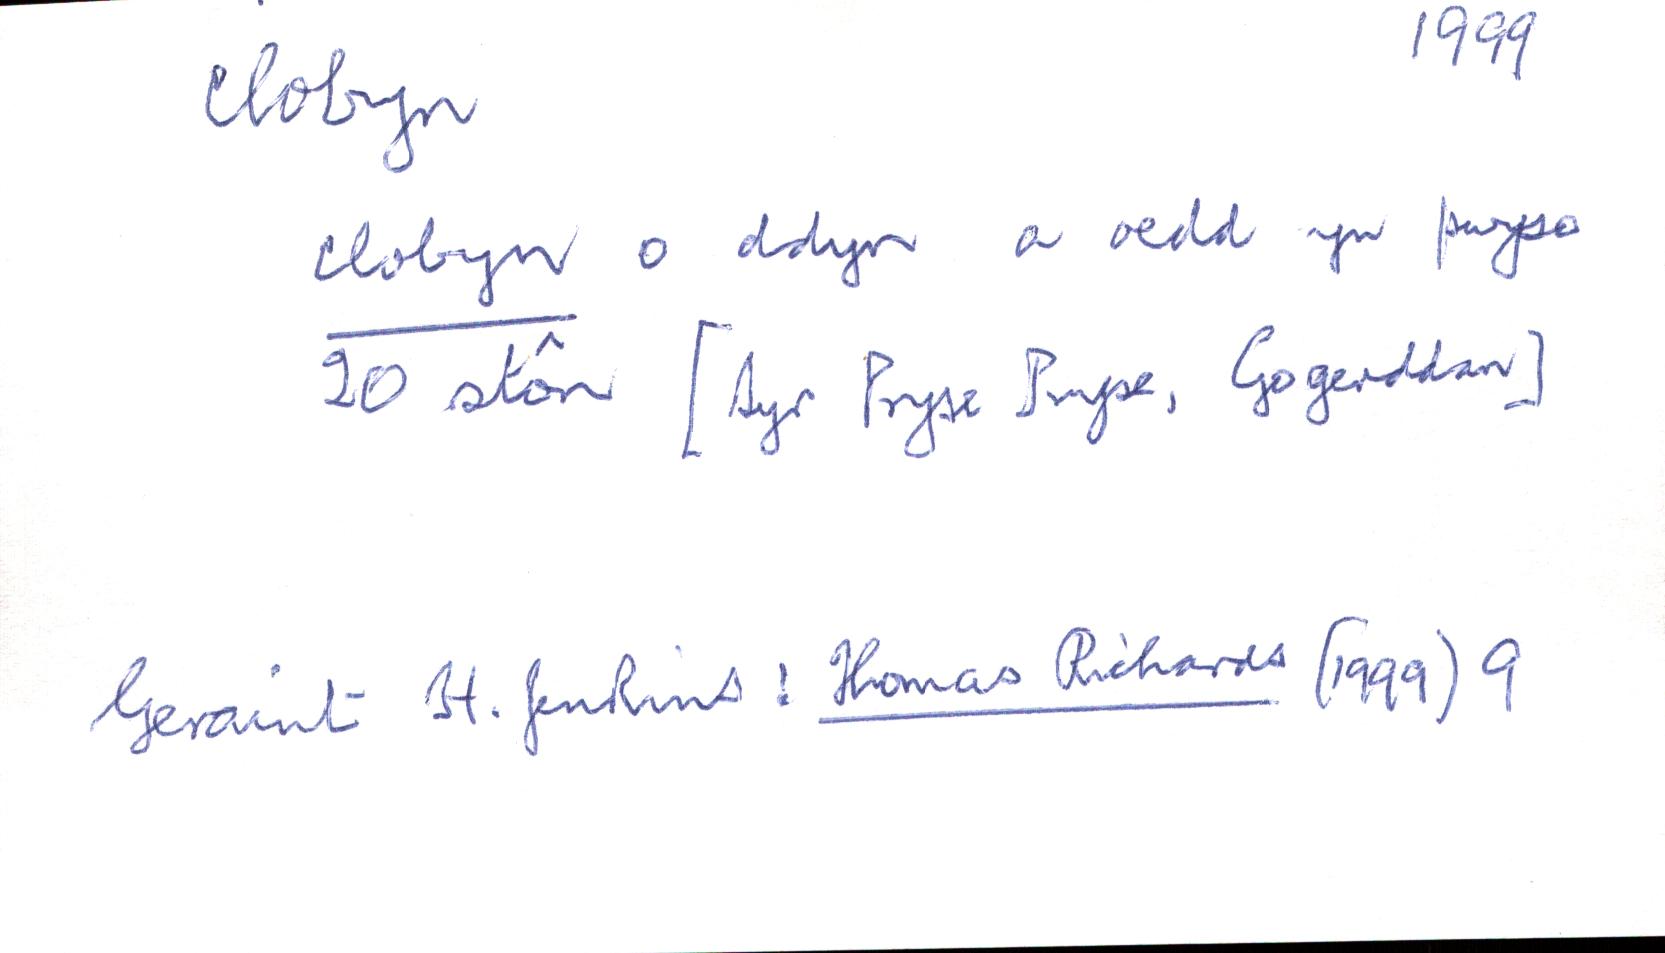 1999
clobyn
clobyn o ddyn a oedd yn pwyso
20 stôn [Syr Pryse Pryse, Gogerddan]
Geraint H. Jenkins: Thomas Richards (1999) 9